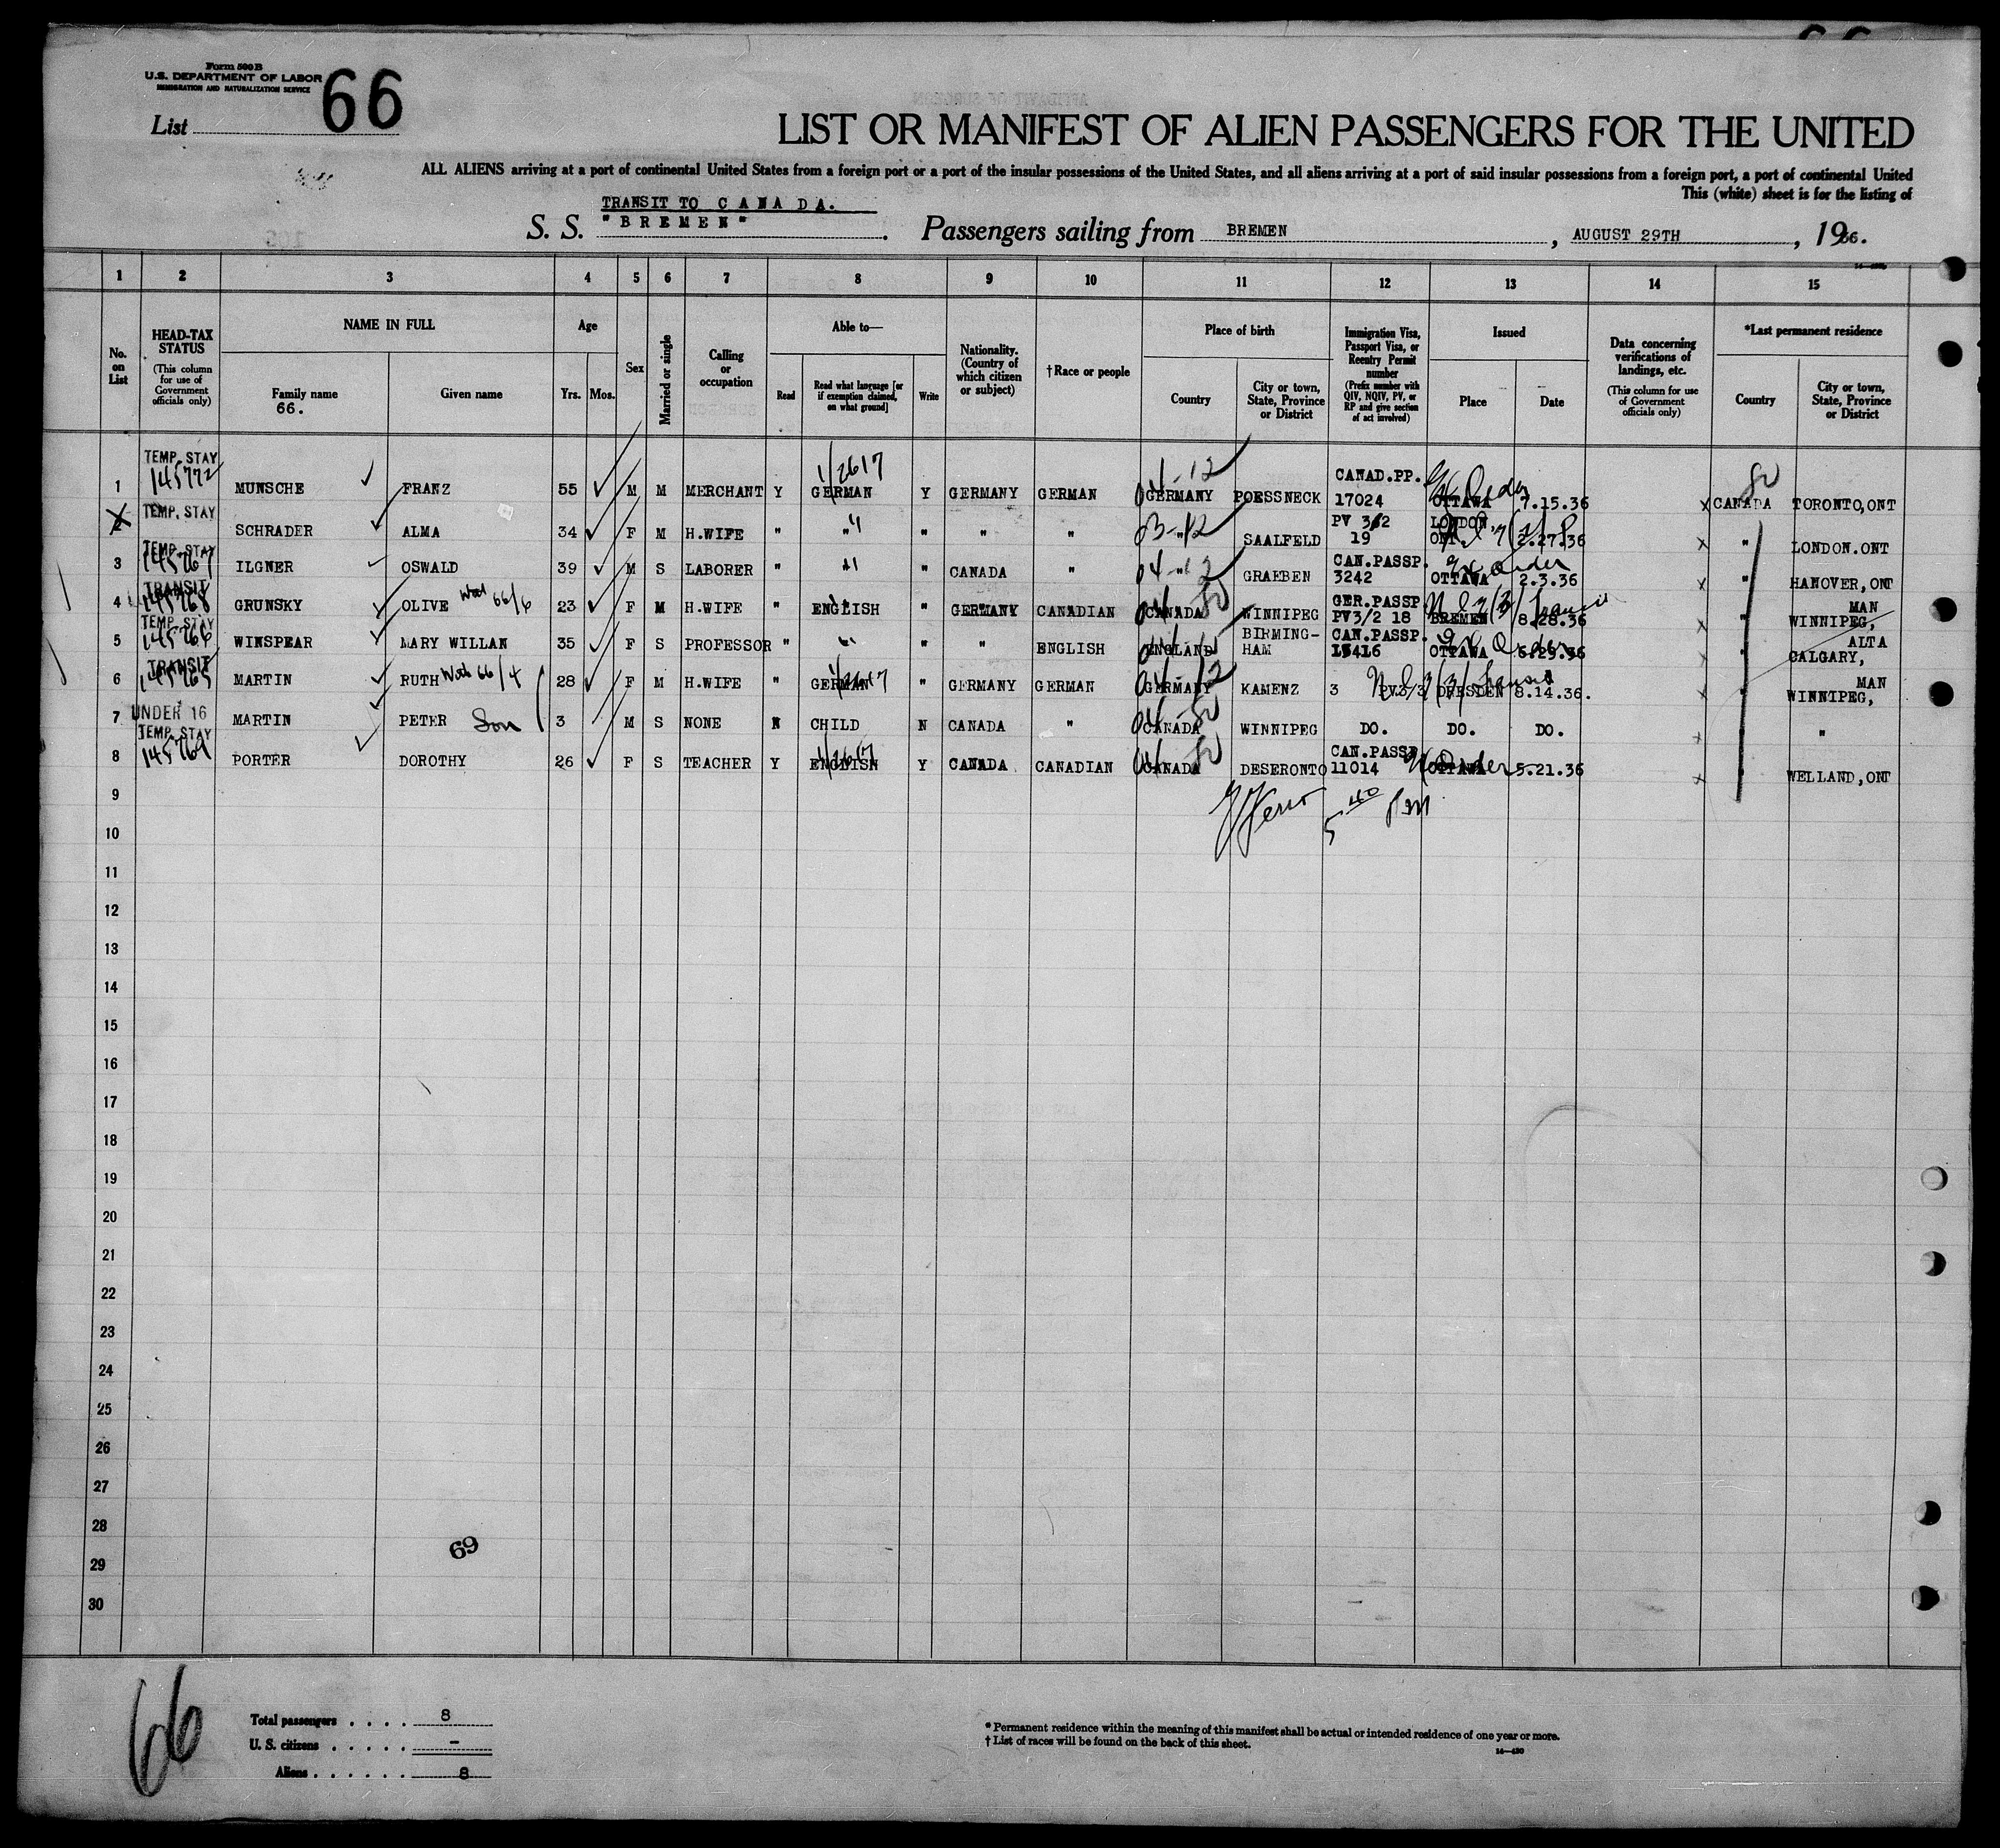 Form 500 B
U.S. DEPARTMENT OF LABOR
IMMIGRATION AND NATURALIZATION SERVICE
List 66
LIST OR MANIFEST OF ALIEN PASSENGERS FOR THE UNITED
ALL ALIENS arriving at a port of continental United States from a foreign port or a port of the insular possessions of the United States, and all aliens arriving at a port of said insular possessions from a foreign port, a port of continental United
This (white) sheet is for the listing of
TRANSIT TO CANADA.
S. S. "BREMEN". Passengers sailing from BREMEN, AUGUST 29TH, 1936.
1 2 3 4 5 6 7 8 9 10 11 12 13 14 15
No. on List
HEAD-TAX STATUS (This column for use of Government officials only)
NAME IN FULL
Family name
66.
Given name
Age
Yrs. Mos.
Sex
Married or single
Calling or occupation
Able to—
Read
Read what language [or if exemption claimed, on what ground]
Write
Nationality. (Country of which citizen or subject)
†Race or people
Place of birth
Country
City or town, State, Province or District
Immigration Visa, Passport Visa, or Reentry Permit number (Prefix number with QIV, NQIV, PV, or RP and give section of act involved)
Issued
Place
Date
Data concerning verifications of landings, etc. (This column for use of Government officials only)
*Last permanent residence
Country
City or town, State, Province or District
1 TEMP. STAY 145772 MUNSCHE FRANZ 55 M M MERCHANT Y GERMAN Y GERMANY GERMAN GERMANY POESSNECK CANAD.PP. 17024 OTTAWA 7.15.36 CANADA TORONTO,ONT
2 TEMP. STAY SCHRADER ALMA 34 F M H.WIFE " " " " " " SAALFELD PV 3/2 19 LONDON, ONT. 2.27.36 " LONDON.ONT
3 TEMP. STAY 145767 ILGNER OSWALD 39 M S LABORER " " " CANADA " " GRAEBEN CAN.PASSP. 3242 OTTAWA 2.3.36 " HANOVER,ONT
4 TRANSIT 145768 GRUNSKY OLIVE 66/6 23 F M H.WIFE " ENGLISH " GERMANY CANADIAN CANADA WINNIPEG GER.PASSP PV3/2 18 BREMEN 8.28.36 " WINNIPEG, MAN
5 TEMP. STAY 145766 WINSPEAR MARY WILLAN 35 F S PROFESSOR " " " " ENGLISH ENGLAND BIRMING-HAM CAN.PASSP. 15416 OTTAWA 6.29.36 " CALGARY, ALTA
6 TRANSIT 145765 MARTIN RUTH 66/4 28 F M H.WIFE " GERMAN " GERMANY GERMAN GERMANY KAMENZ 3 PV.3/3 DRESDEN 8.14.36. " WINNIPEG, MAN
7 UNDER 16 MARTIN PETER Son 3 M S NONE N CHILD N CANADA " CANADA WINNIPEG DO. DO. DO. "
8 TEMP. STAY 145769 PORTER DOROTHY 26 F S TEACHER Y ENGLISH Y CANADA CANADIAN CANADA DESERONTO CAN.PASSP 11014 OTTAWA 5.21.36 WELLAND,ONT
9
5 40 PM
10
11
12
13
14
15
16
17
18
19
20
21
22
23
24
25
26
27
28
69
29
30
66
Total passengers . . . . 8
U. S. citizens . . . . . -
Aliens . . . . . . 8
* Permanent residence within the meaning of this manifest shall be actual or intended residence of one year or more.
† List of races will be found on the back of this sheet.
14—430